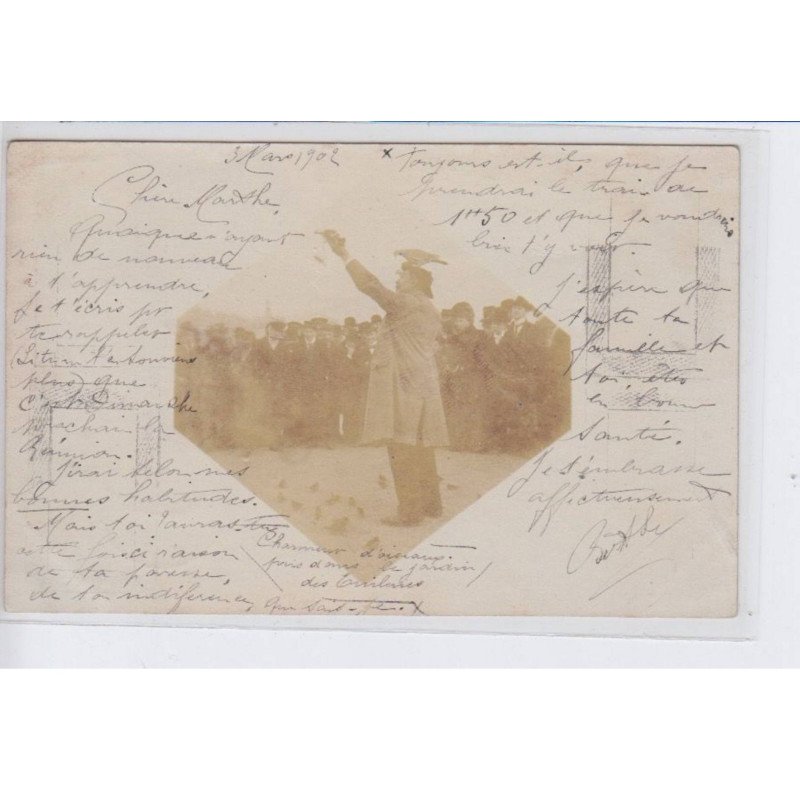 3 Mars 1902
Chère Marthe,
Quoique n'ayant
rien de nouveau
à t'apprendre,
Je t'écris pr
te rappeler
(Si tu ne t'en souviens
plus) que
c'est Dimanche
prochain la
Réunion.
J'irai selon mes
bonnes habitudes.
Mais toi l'auras
cette fois-ci raison
de ta paresse,
de ton indifférence, que sais-je. x
x Toujours est-il, que je
prendrai le train de
1h50 et que je voudrais
bien t'y voir.
J'espère que
toute ta
famille et
toi, êtes
en bonne
Santé.
Je t'embrasse
affectueusement
Berthe
Charmeur d'oiseaux
pris dans le jardin
des Tuileries